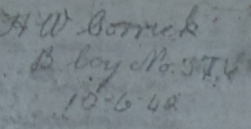 H W Corrick
B boy No. 
10-6-42